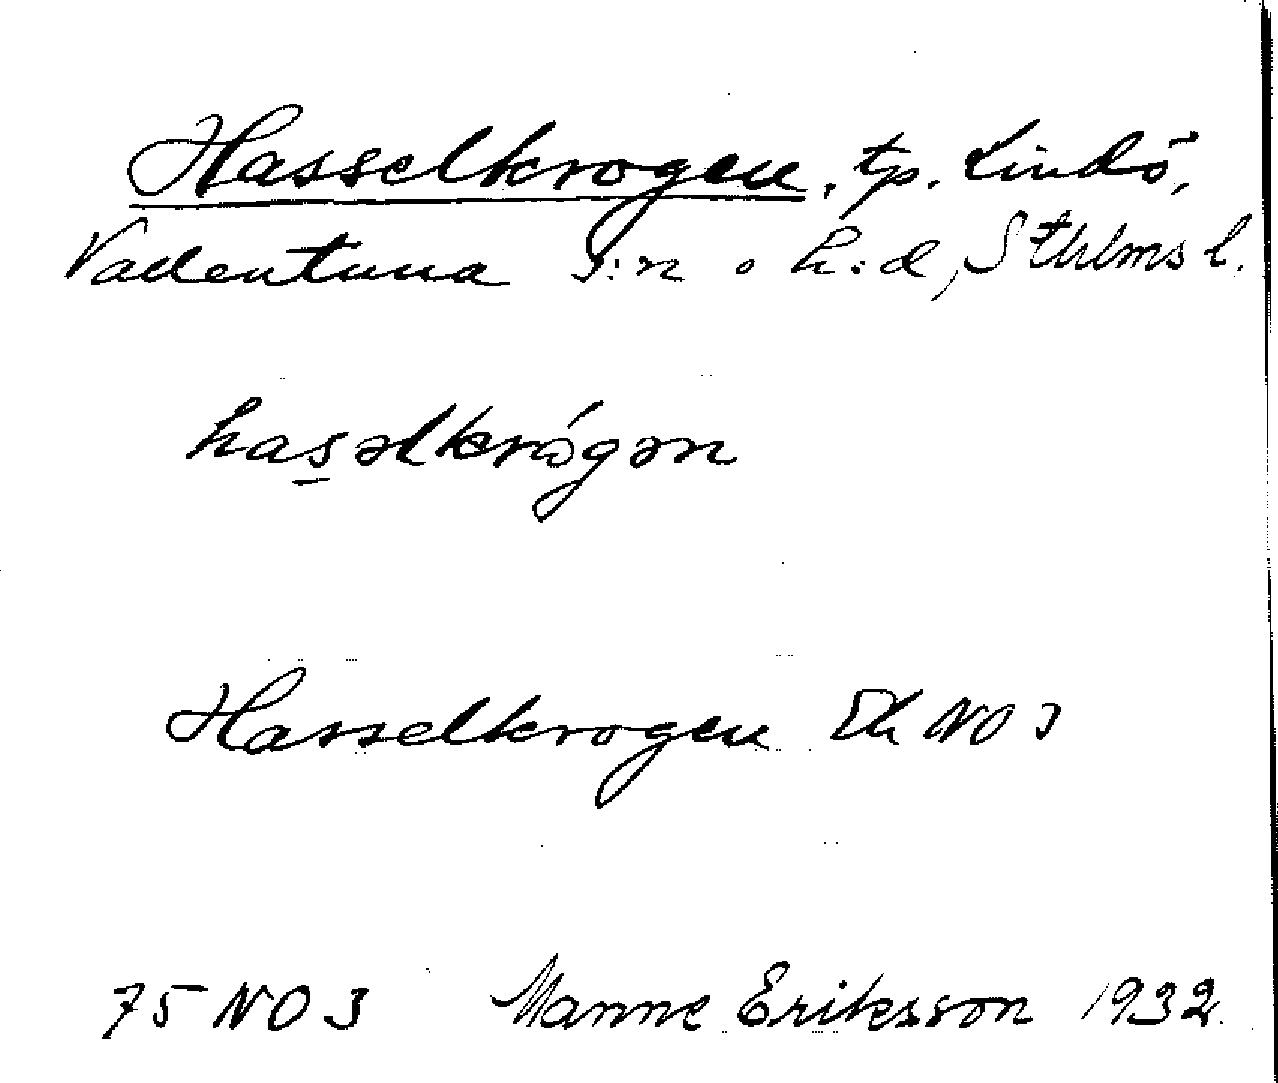 Hasselkrogen, tp. Lindö,
Vallentuna s:n o h:d, Sthlms l.
has̲əlkrógən
Hasselkrogen Ek NO 3
75 NO 3 Manne Eriksson 1932.